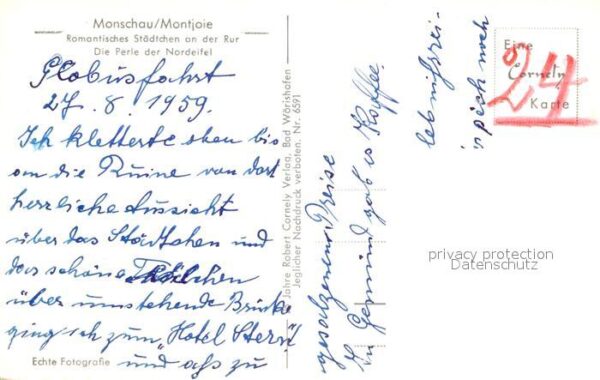 Monschau/Montjoie
Romantisches Städtchen an der Rur
Die Perle der Nordeifel
Globusfahrt
27. 8. 1959.
Ich kletterte oben bis
an die Ruine von dort
herrliche Aussicht
über das Städtchen und
das schöne Tälchen
über umstehende Brücke
ging ich zum „Hotel Stern"
und aß zu
Echte Fotografie
Jahre Robert Cornely Verlag, Bad Wörishofen
Jeglicher Nachdruck verboten. Nr. 6591
gesalzenem Preise
In Gemünd gab es Kaffee.
lebnisrei-
noch
Eine
Cornely
Karte
24
privacy protection
Datenschutz